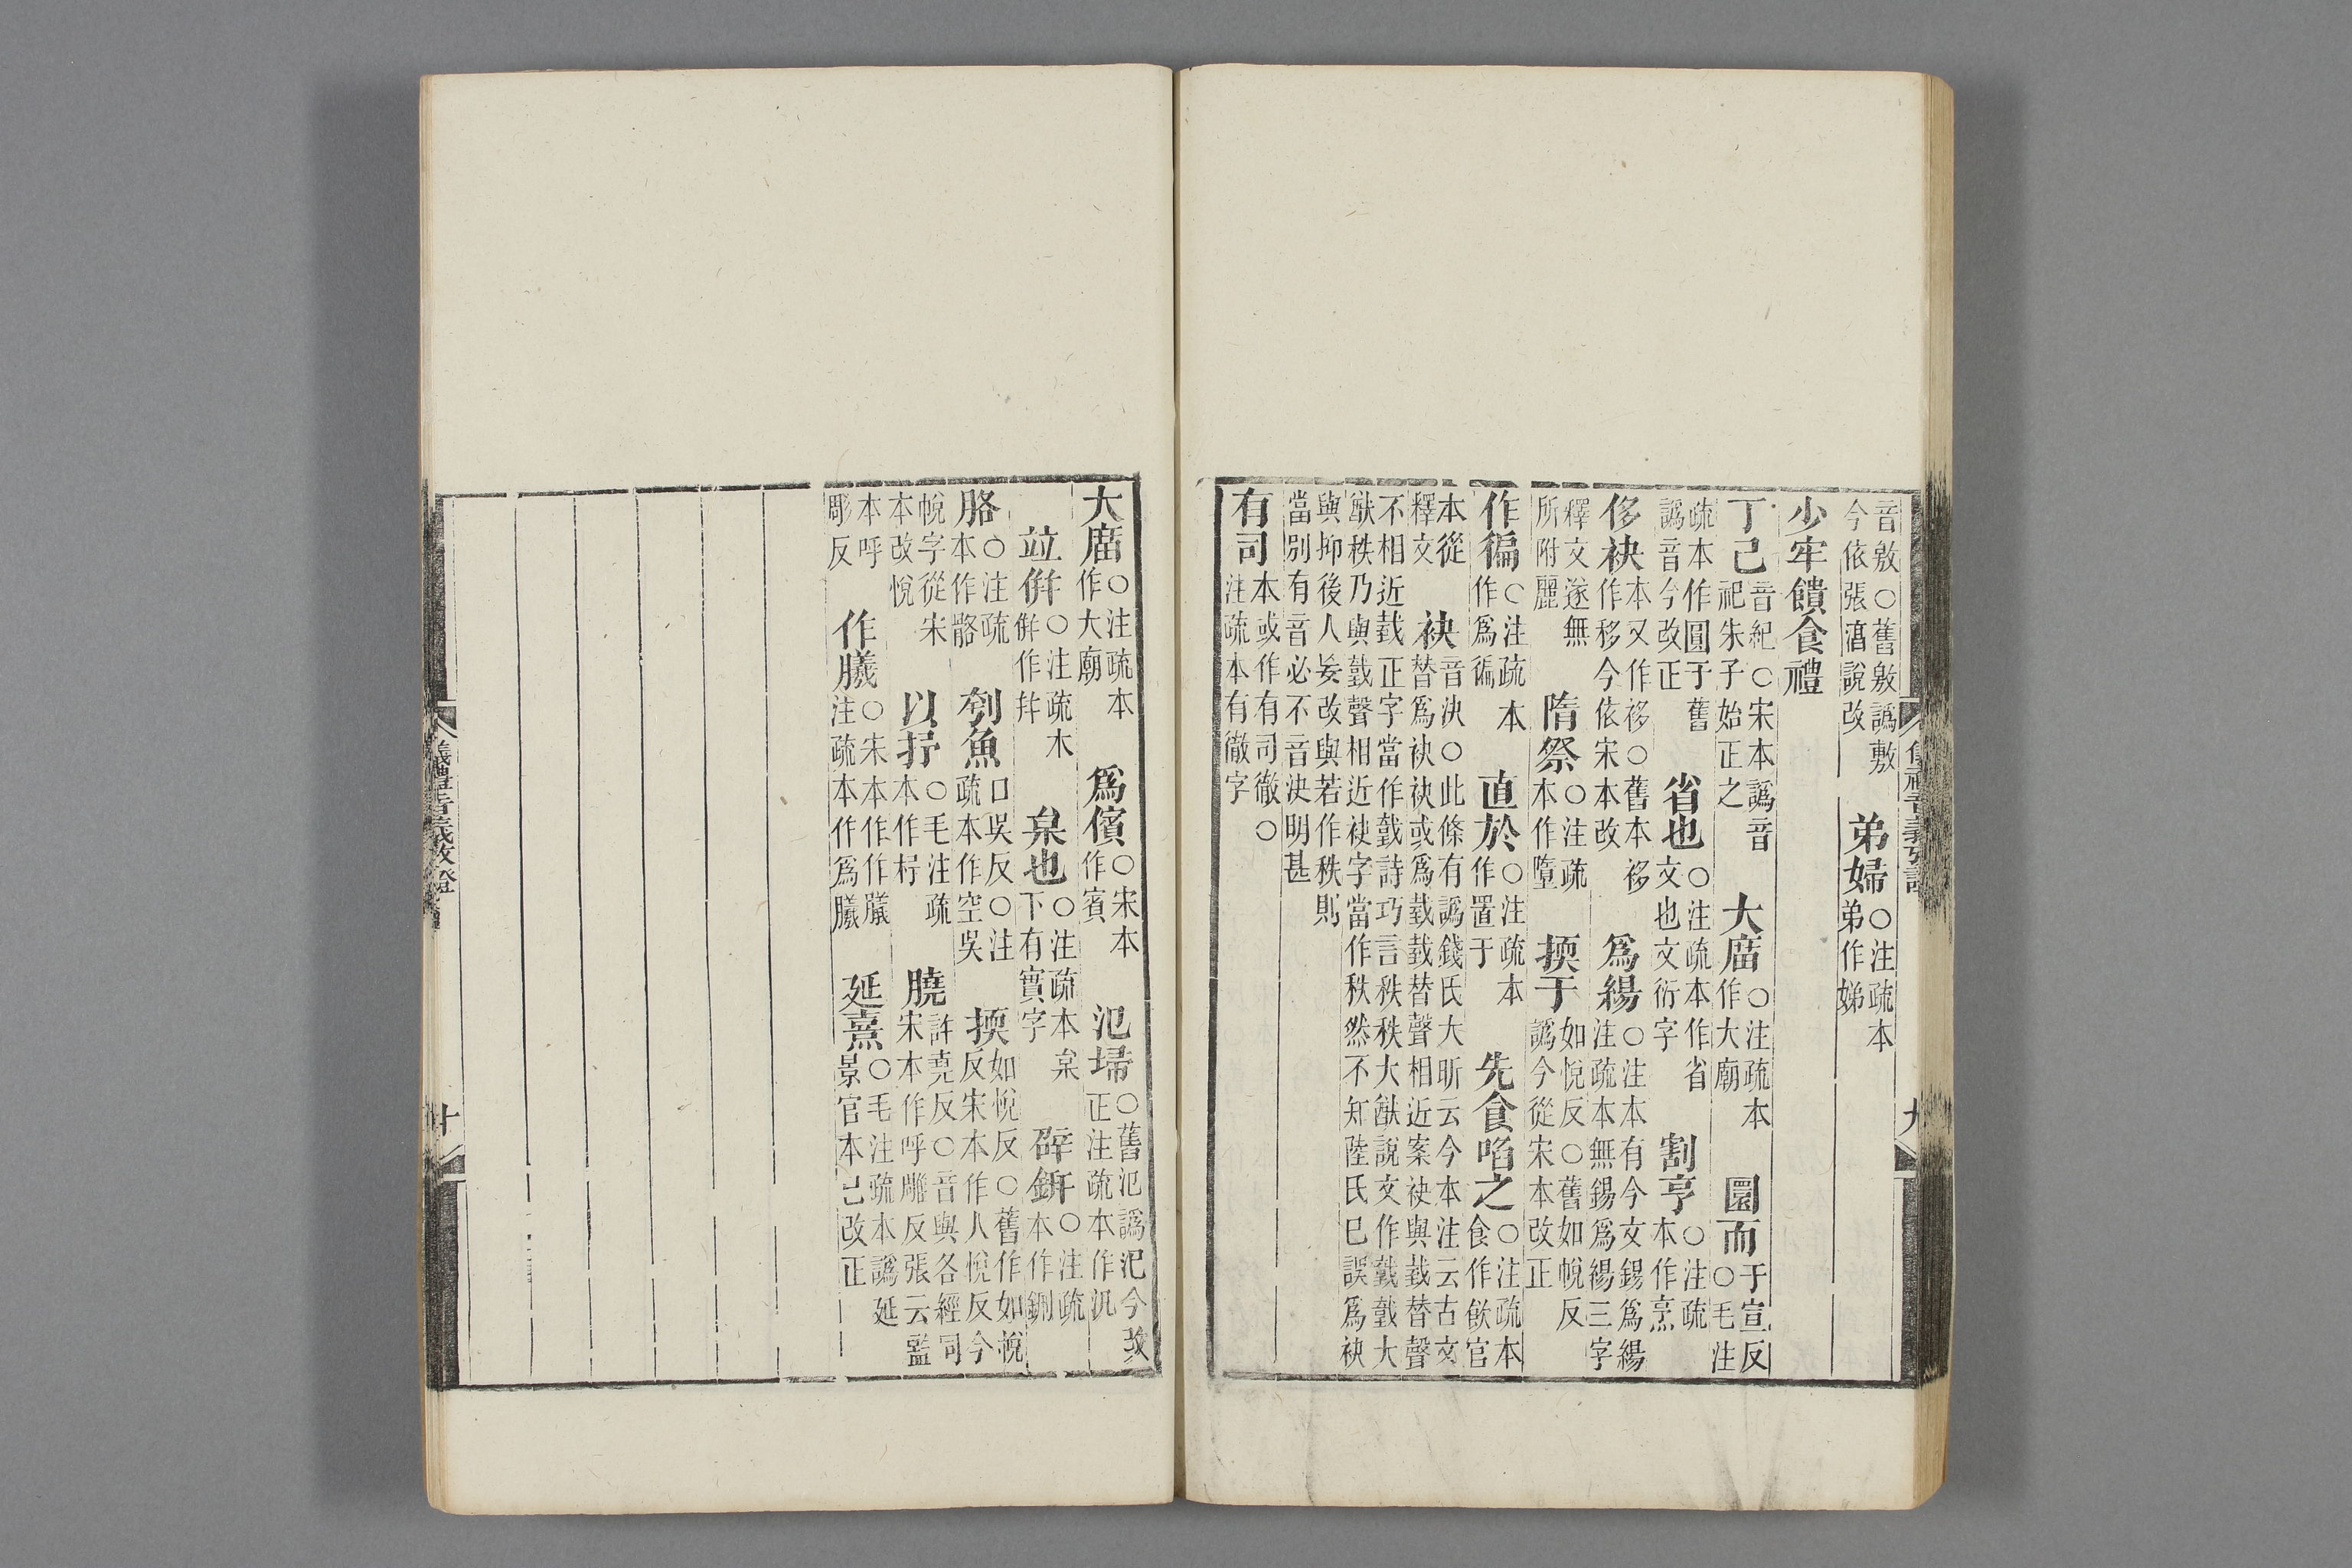 音敫○舊敫譌敷今依張㴞說改　弟婦○注疏本弟作娣
少牢饋食禮
丁己音紀○宋本譌音祀朱子始正之　大庿○注疏本作大廟　圜而于宣反○毛注
疏本作圓于舊譌音今改正　省也○注疏本作省文也文衍字　割亨○注疏本作烹
侈袂本又作袳○舊本袳作移今依宋本改　爲緆○注本有今文錫爲緆注疏本無錫爲緆三字
釋文遂無所附麗　隋祭○注疏本作墮　擩于如悅反○舊如帨反譌今從宋本改正
作徧○注疏本作爲徧　直於○注疏本作置于　先食啗之○注疏本食作飮官
本從釋文　袂音決○此條有譌錢氏大昕云今本注云古文替爲袂袂或爲臷臷替聲相近案袂與臷替聲
不相近臷正字當作䟆詩巧言秩秩大猷說文作䟆䟆大猷秩乃與䟆聲相近袂字當作秩然不知陸氏已誤爲袂
與抑後人妄改與若作秩則當別有音必不音決明甚
有司本或作有司徹○注疏本有徹字
大庿○注疏本作大廟　爲儐○宋本作賓　氾埽○舊氾譌汜今改正注疏本作汎
竝倂○注疏本倂作并　枲也○注疏本枲下有實字　硎鉶○注疏本作鉶
胳○注疏本作骼　刳魚口吳反○注疏本作空吳　擩如悅反○舊作如帨反宋本作人悅反今
帨字從宋本改悅　以抒○毛注疏本作杼　膮許堯反○音與各經同宋本作呼雕反張云監
本呼彫反　作膱○宋本作作膱注疏本作爲膱　延熹○毛注疏本譌延景官本已改正
儀禮音義攷證
九
儀禮音義攷證
十